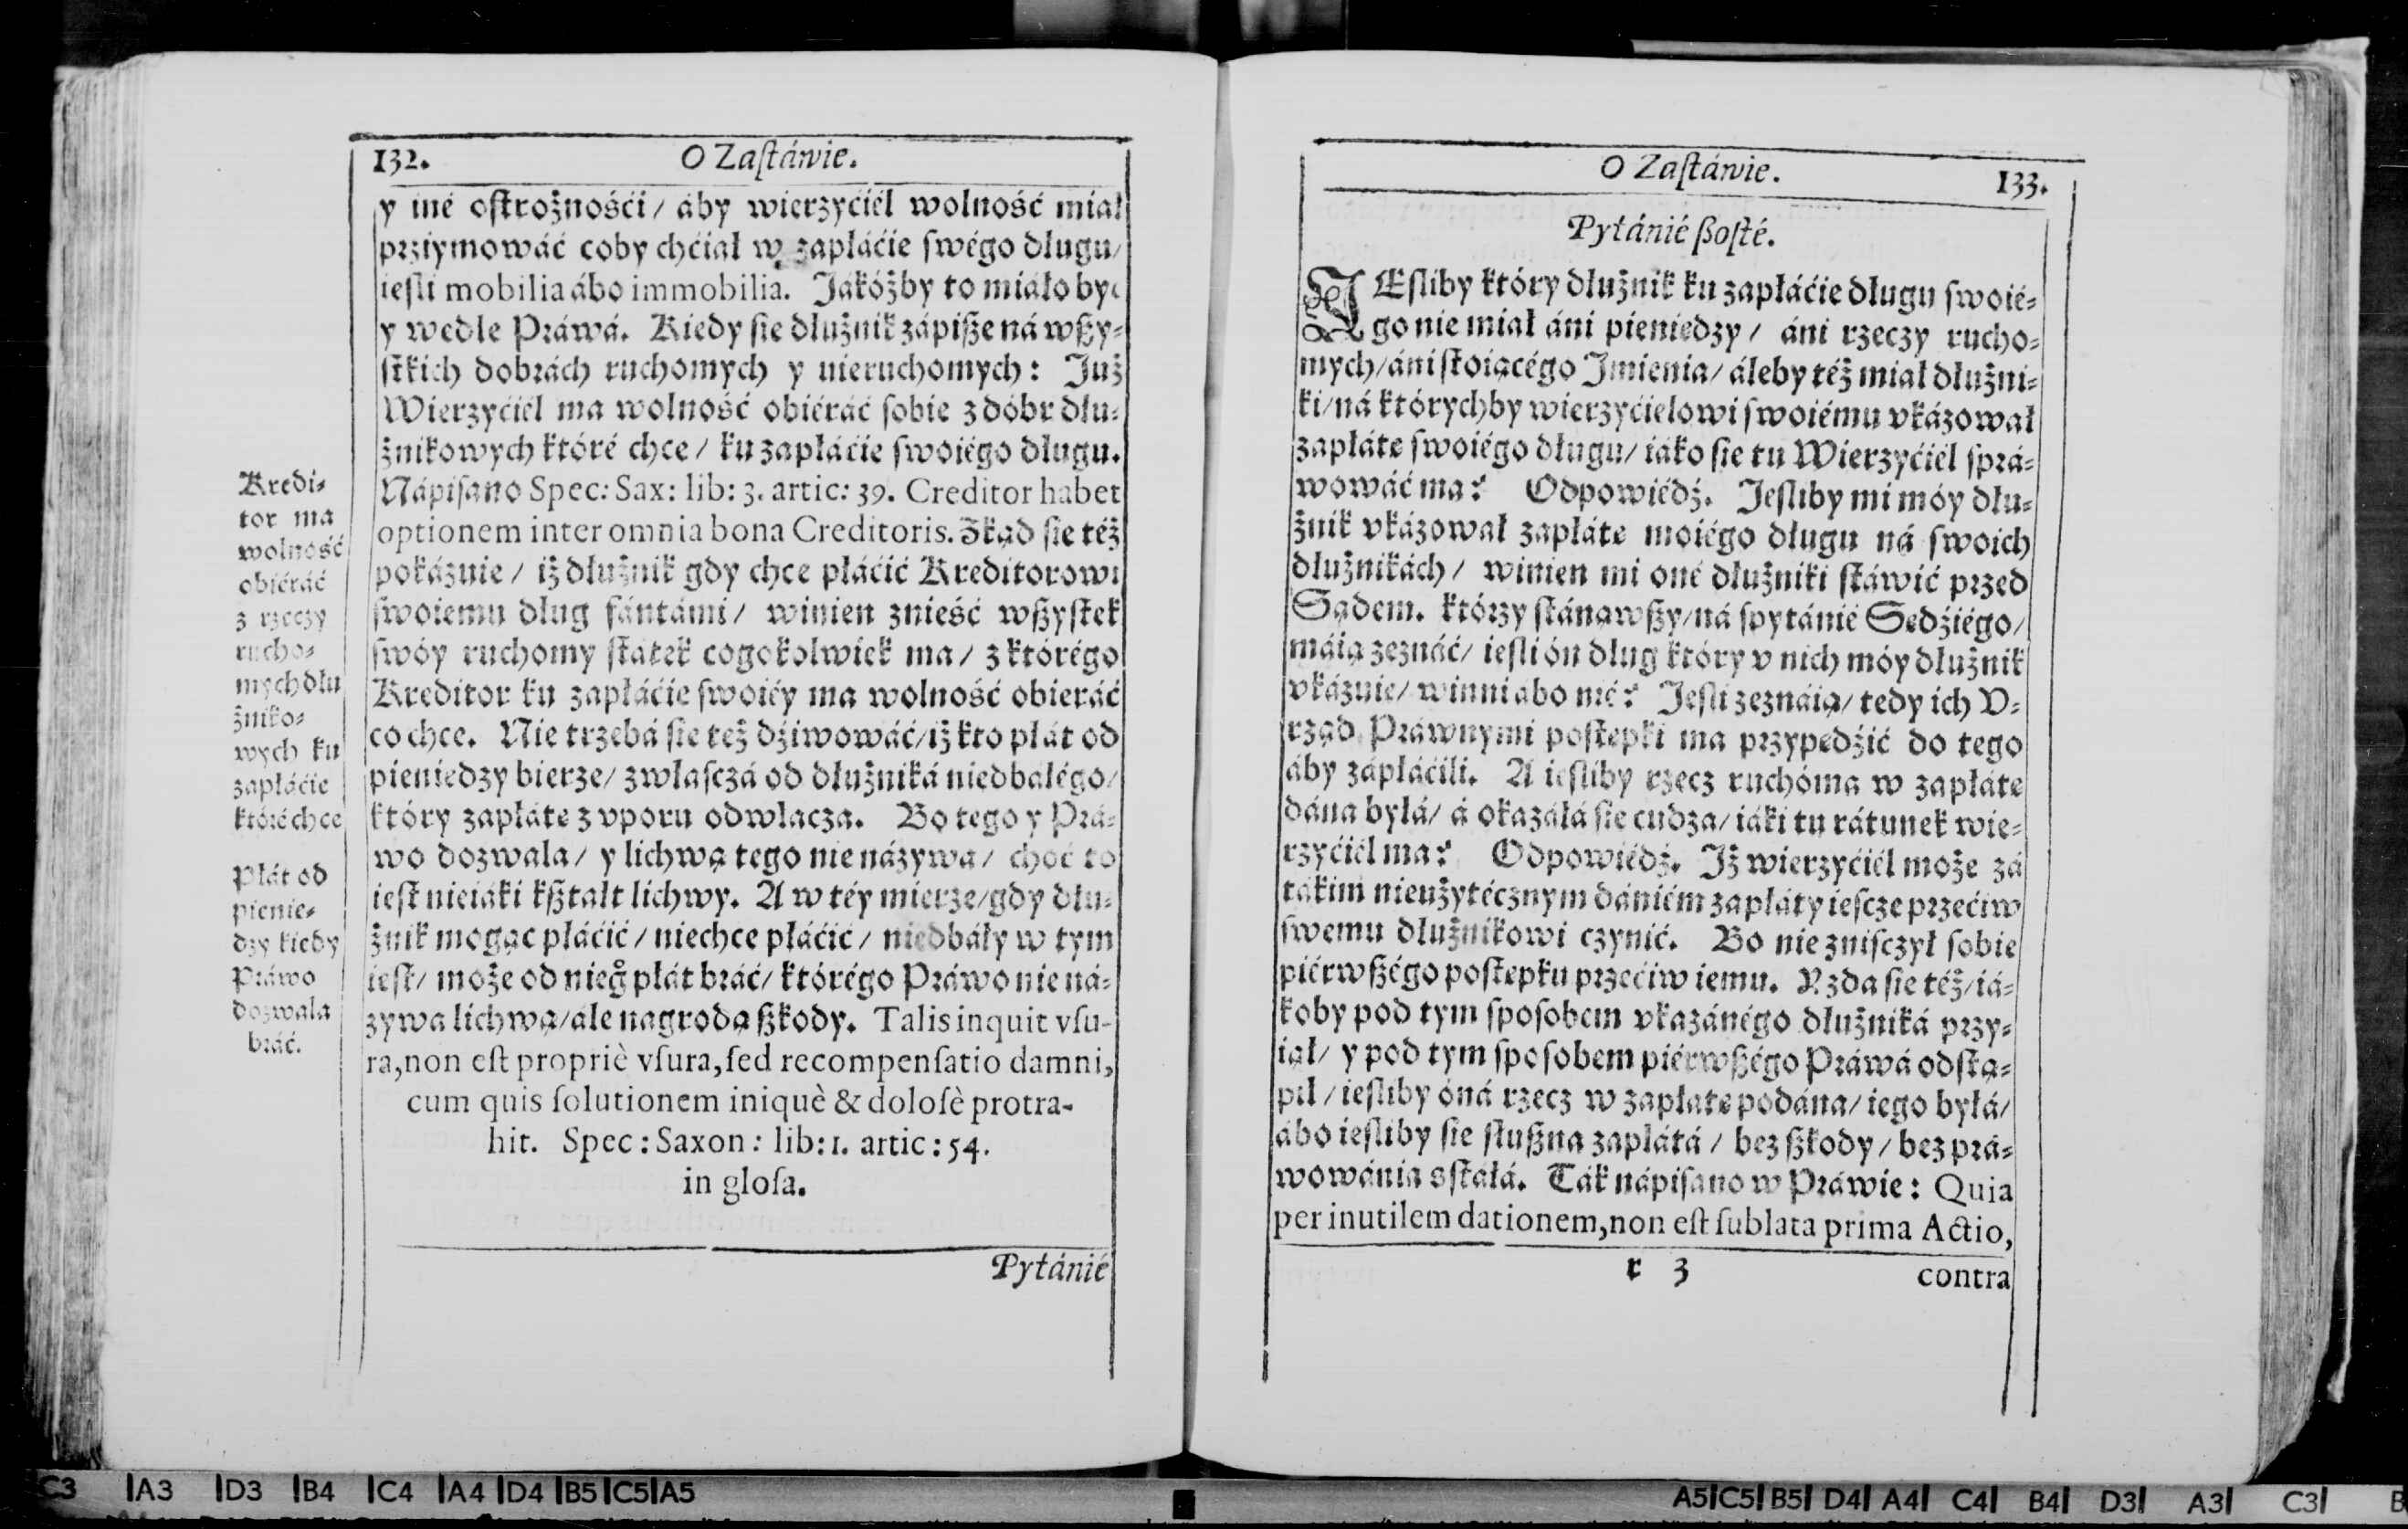 132. O Zaſtáwie.
y iné oſtrożnośći / áby wierzyćiél wolność miał
prziymowáć coby chćiał w zapłáćie ſwégo długu /
ieſli mobilia ábo immobilia. Jákóżby to miáło być
y wedle Práwá. Kiedy ſie dłużnik zápiße ná wßy-
ſtkich dobrách ruchomych y nieruchomych: Już
Wierzyćiél ma wolność obiéráć ſobie z dóbr dłu-
żnikowych któré chce / ku zapłáćie ſwoiégo długu.
Nápiſano Spec: Sax: lib: 3. artic: 39. Creditor habet
optionem inter omnia bona Creditoris. Zkąd ſie téż
pokázuie / iż dłużnik gdy chce płáćić Kreditorowi
ſwoiemu dług fántámi / winien znieść wßyſtek
ſwóy ruchomy ſtátek cogokolwiek ma / z którégo
Kreditor ku zapłáćie ſwoiéy ma wolność obieráć
co chce. Nie trzebá ſie też dźiwowáć / iż kto płát od
pieniedzy bierze / zwłaſczá od dłużniká niedbałégo /
który zapłáte z vporu odwłacza. Bo tego y Prá-
wo dozwala / y lichwą tego nie názywa / choć to
ieſt nieiáki kßtałt lichwy. A w téy mierze / gdy dłu-
żnik mogąc płáćić / niechce płáćić / niedbáły w tym
ieſt / może od nieg̊ płát bráć / którégo Práwo nie ná-
zywa lichwą / ále nagrodą ßkody. Talis inquit vſu-
ra, non eſt propriè vſura, ſed recompenſatio damni,
cum quis ſolutionem iniquè & doloſè protra-
hit. Spec: Saxon: lib: 1. artic: 54.
in gloſa.
Pytánié
Kredi-
tor ma
wolność
obiéráć
z rzeczy
rucho-
mych dłu
żniko-
wych ku
zapłáćie
któré chce
Płát od
pienie-
dzy kiedy
Práwo
dozwala
bráć.
O Zaſtáwie. 133.
Pytánié ßoſté.
JEſliby który dłużnik ku zapłáćie długu ſwoié-
go nie miał áni pieniedzy / áni rzeczy rucho-
mych / áni ſtoiącégo Jmienia / áleby téż miał dłużni-
ki / ná którychby wierzyćielowi ſwoiému vkázował
zapłáte ſwoiégo długu / iáko ſie tu Wierzyćiél ſprá-
wowáć ma? Odpowiédź. Jeſliby mi móy dłu-
żnik vkázował zapłáte moiégo długu ná ſwoich
dłużnikách / winien mi oné dłużniki ſtáwić przed
Sądem. którzy ſtánąwßy / ná ſpytánié Sedźiégo /
máią zeznáć / ieſli ón dług który v nich móy dłużnik
vkázuie / winni ábo nié? Jeſli zeznáią / tedy ich V-
rząd Práwnymi poſtepki ma przypedźić do tego
áby zápłáćili. A ieſliby rzecz ruchóma w zapłáte
dána byłá / á okazáłá ſie cudza / iáki tu rátunek wie-
rzyćiél ma? Odpowiédź. Jż wierzyćiél może zá
tákim nieużytécznym dániém zapłáty ieſcze przećiw
ſwemu dłużnikowi czynić. Bo nie zniſczył ſobie
piérwßégo poſtepku przećiw iemu. Azda ſie téż / iá-
koby pod tym ſpoſobem vkazánégo dłużniká przy-
iął / y pod tym ſpoſobem piérwßégo Práwá odſtą-
pił / ieſliby óná rzecz w zapłate podána / iego byłá /
ábo ieſliby ſie ſłußna zapłátá / bez ßkody / bez prá-
wowánia sſtáłá. Ták nápiſano w Práwie: Quia
per inutilem dationem, non eſt ſublata prima Actio,
r 3 contra
C3 A3 D3 B4 C4 A4 D4 B5 C5 A5
A5 C5 B5 D4 A4 C4 B4 D3 A3 C3 B